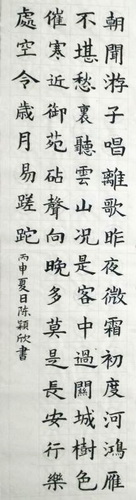 朝聞游子唱離歌昨夜微霜初度河鴻雁
不堪愁裏聽雲山况是客中過關城樹色
催寒近御苑砧聲向晚多莫是長安行樂
處空令歲月易蹉跎
丙申夏日陳穎欣書